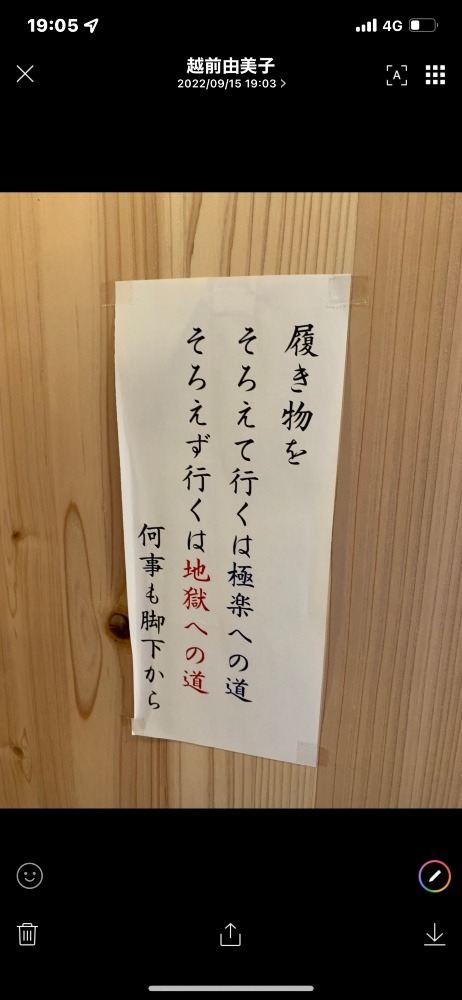 19:05
4G
越前由美子
2022/09/15 19:03
A
履き物を
そろえて行くは極楽への道
そろえず行くは地獄への道
何事も脚下から